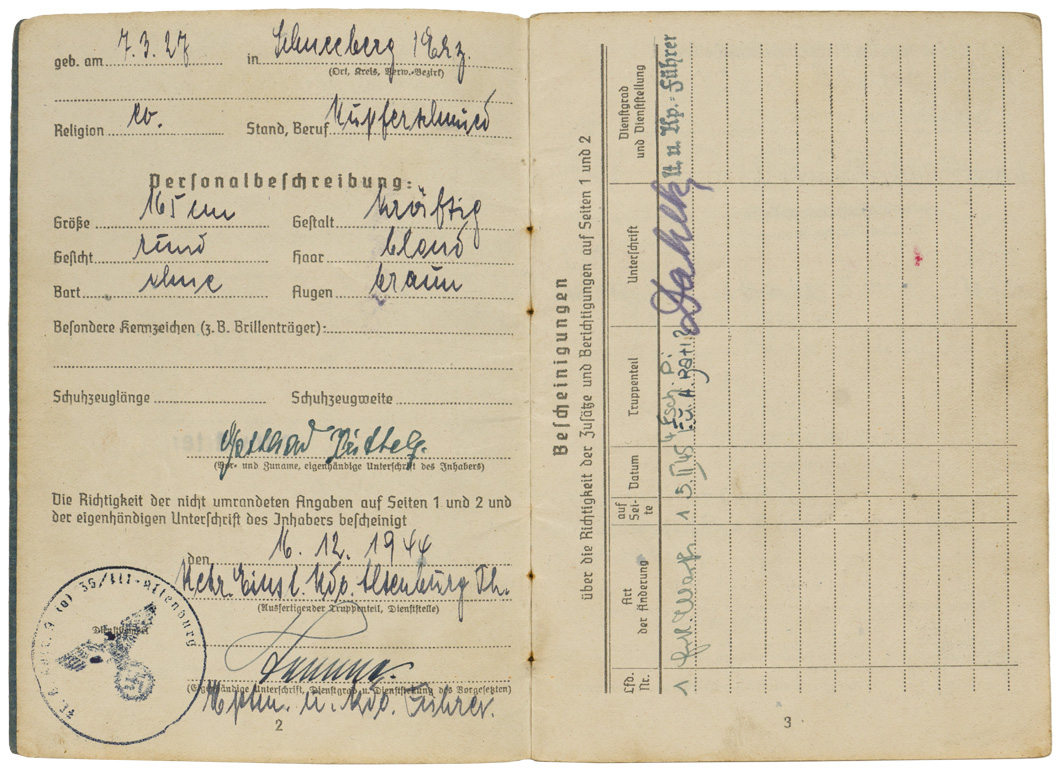 geb. am 7.3.27 in Schneeberg / Erz.
(Ort, Kreis, Verw.-Bezirk)
Religion ev. Stand, Beruf Kupferschmied
Personalbeschreibung:
Größe 165 cm Gestalt kräftig
Gesicht rund Haar blond
Bart ohne Augen braun
Besondere Kennzeichen (z.B. Brillenträger):
Schuhzeuglänge Schuhzeugweite
(Vor- und Zuname, eigenhändige Unterschrift des Inhabers)
Die Richtigkeit der nicht umrandeten Angaben auf Seiten 1 und 2 und
der eigenhändigen Unterschrift des Inhabers bescheinigt
den 16. 12. 1944
Altenburg Th.
(Ausfertigender Truppenteil, Dienststelle)
Dienstsiegel
(Eigenhändige Unterschrift, Dienstgrad u. Dienststellung des Vorgesetzten)
Hptm. u. Kdo. Führer.
2
Altenburg
Bescheinigungen
über die Richtigkeit der Zusätze und Berichtigungen auf Seiten 1 und 2
Lfd. Nr.
Art der Änderung
auf Sei-te
Datum
Truppenteil
Unterschrift
Dienstgrad und Dienststellung
1
1
u. Kp.-Führer
3